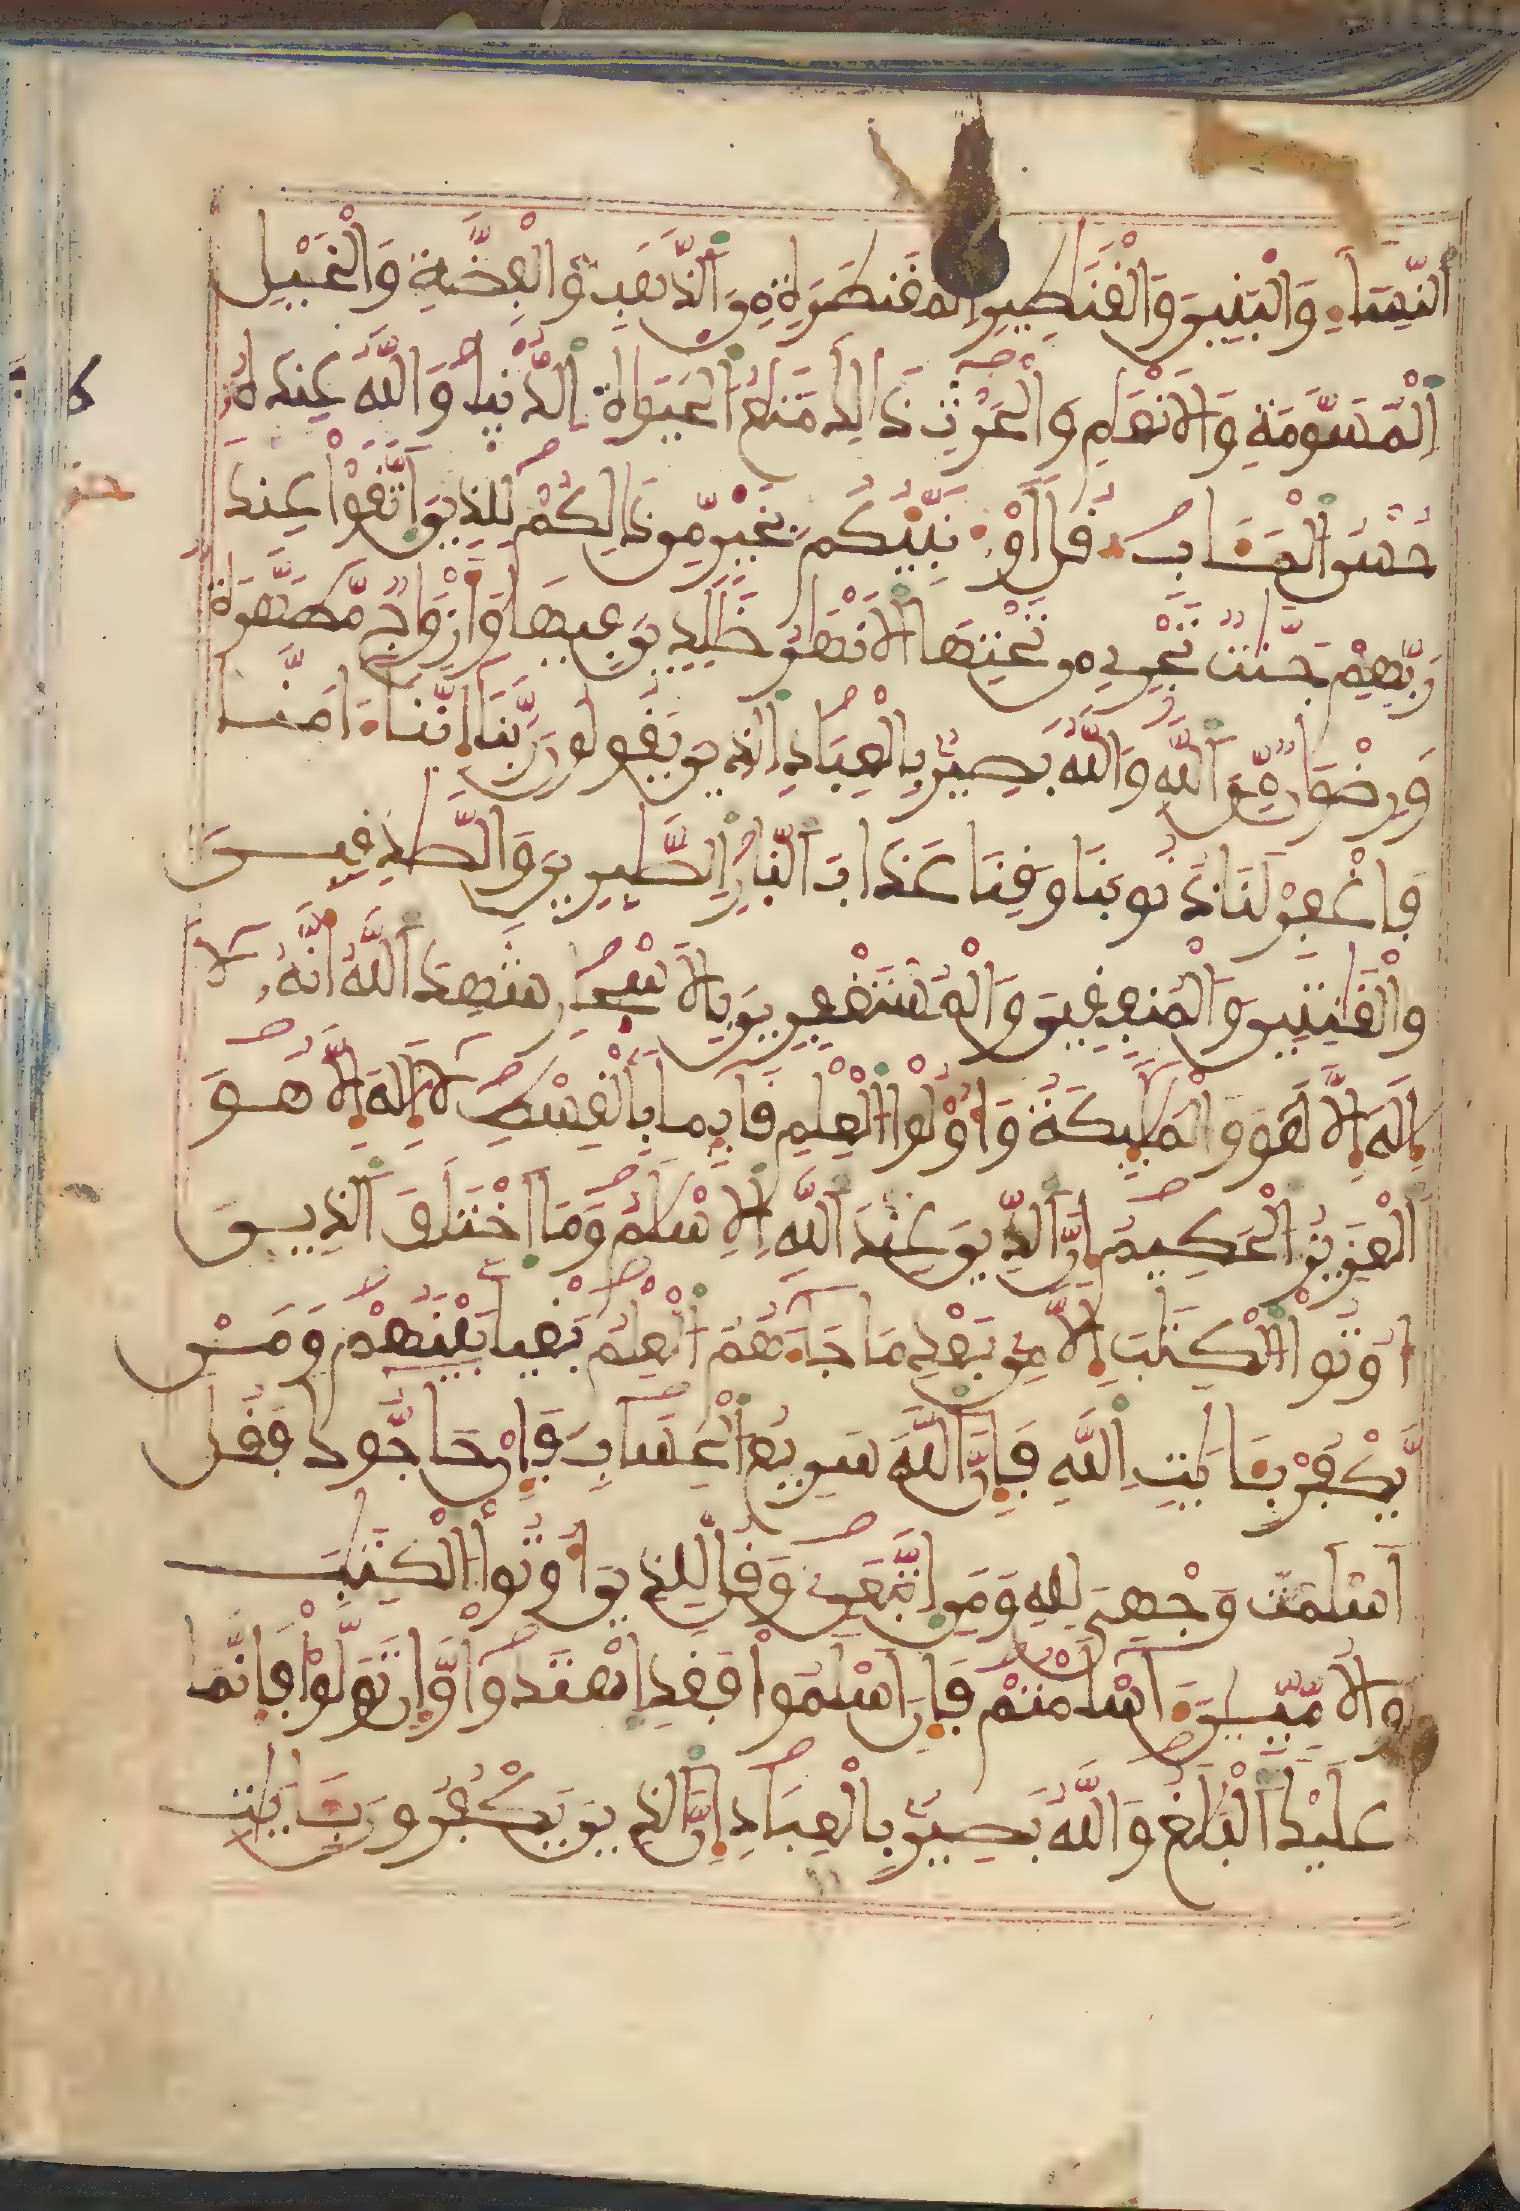 اَ۬لنِّسَآءِ وَالْبَنِينَ وَالْقَنَٰطِيرِ اِ۬لْمُقَنطَرَةِ مِنَ اَ۬لذَّهَبِ وَالْفِضَّةِ وَالْخَيْلِ
اِ۬لْمُسَوَّمَةِ وَالَانْعَٰمِ وَالْحَرْثِ ذَٰلِكَ مَتَٰعُ اُ۬لْحَيَوٰةِ اِ۬لدُّنْيَا وَاللَّهُ عِندَهُۥ
حُسْنُ اُ۬لْمَـَٔابِ قُلَ اَوُ۟نَبِّئُكُم بِخَيْرٍ مِّن ذَٰلِكُمْ لِلذِينَ اَ۪تَّقَوْاْ عِندَ
رَبِّهِمْ جَنَّٰتٌ تَجْرِے مِن تَحْتِهَا اَ۬لَانْهَٰرُ خَٰلِدِينَ فِيهَا وَأَزْوَٰجٌ مُّطَهَّرَةٌ
وَرِضْوَٰنٌ مِّنَ اَ۬للَّهِ وَاللَّهُ بَصِيرٌ بِالْعِبَادِ اِ۬لذِينَ يَقُولُونَ رَبَّنَآ إِنَّنَآ ءَامَنَّا
فَاغْفِرْ لَنَا ذُنُوبَنَا وَقِنَا عَذَابَ اَ۬لنَّارِ اِ۬لصَّٰبِرِينَ وَالصَّٰدِقِينَ
وَالْقَٰنِتِينَ وَالْمُنفِقِينَ وَالْمُسْتَغْفِرِينَ بِالَاسْحَارِ شَهِدَ اَ۬للَّهُ أَنَّهُۥ لَآ
إِلَٰهَ إِلَّا هُوَ وَالْمَلَٰٓئِكَةُ وَأُوْلُواْ اُ۬لْعِلْمِ قَآئِماَۢ بِالْقِسْطِ لَآ إِلَٰهَ إِلَّا هُوَ
اَ۬لْعَزِيزُ اُ۬لْحَكِيمُ إِنَّ اَ۬لدِّينَ عِندَ اَ۬للَّهِ اِ۬لِاسْلَٰمُ وَمَا اَ۪خْتَلَفَ اَ۬لذِينَ
أُوتُواْ اُ۬لْكِتَٰبَ إِلَّا مِنۢ بَعْدِ مَا جَآءَهُمُ اُ۬لْعِلْمُ بَغْياَۢ بَيْنَهُمْ وَمَنْ
يَّكْفُرْ بِـَٔايَٰتِ اِ۬للَّهِ فَإِنَّ اَ۬للَّهَ سَرِيعُ اُ۬لْحِسَابِ فَإِنْ حَآجُّوكَ فَقُلَ
اَسْلَمْتُ وَجْهِيَ لِلهِ وَمَنِ اِ۪تَّبَعَنِۦ وَقُل لِّلذِينَ أُوتُواْ اُ۬لْكِتَٰبَ
وَالُامِّيِّـۧنَ ءَآسْلَمْتُمْ فَإِنَ اَسْلَمُواْ فَقَدِ اِ۪هْتَدَواْ وَّإِن تَوَلَّوْاْ فَإِنَّمَا
عَلَيْكَ اَ۬لْبَلَٰغُ وَاللَّهُ بَصِيرٌ بِالْعِبَادِ إِنَّ اَ۬لذِينَ يَكْفُرُونَ بِـَٔايَٰتِ